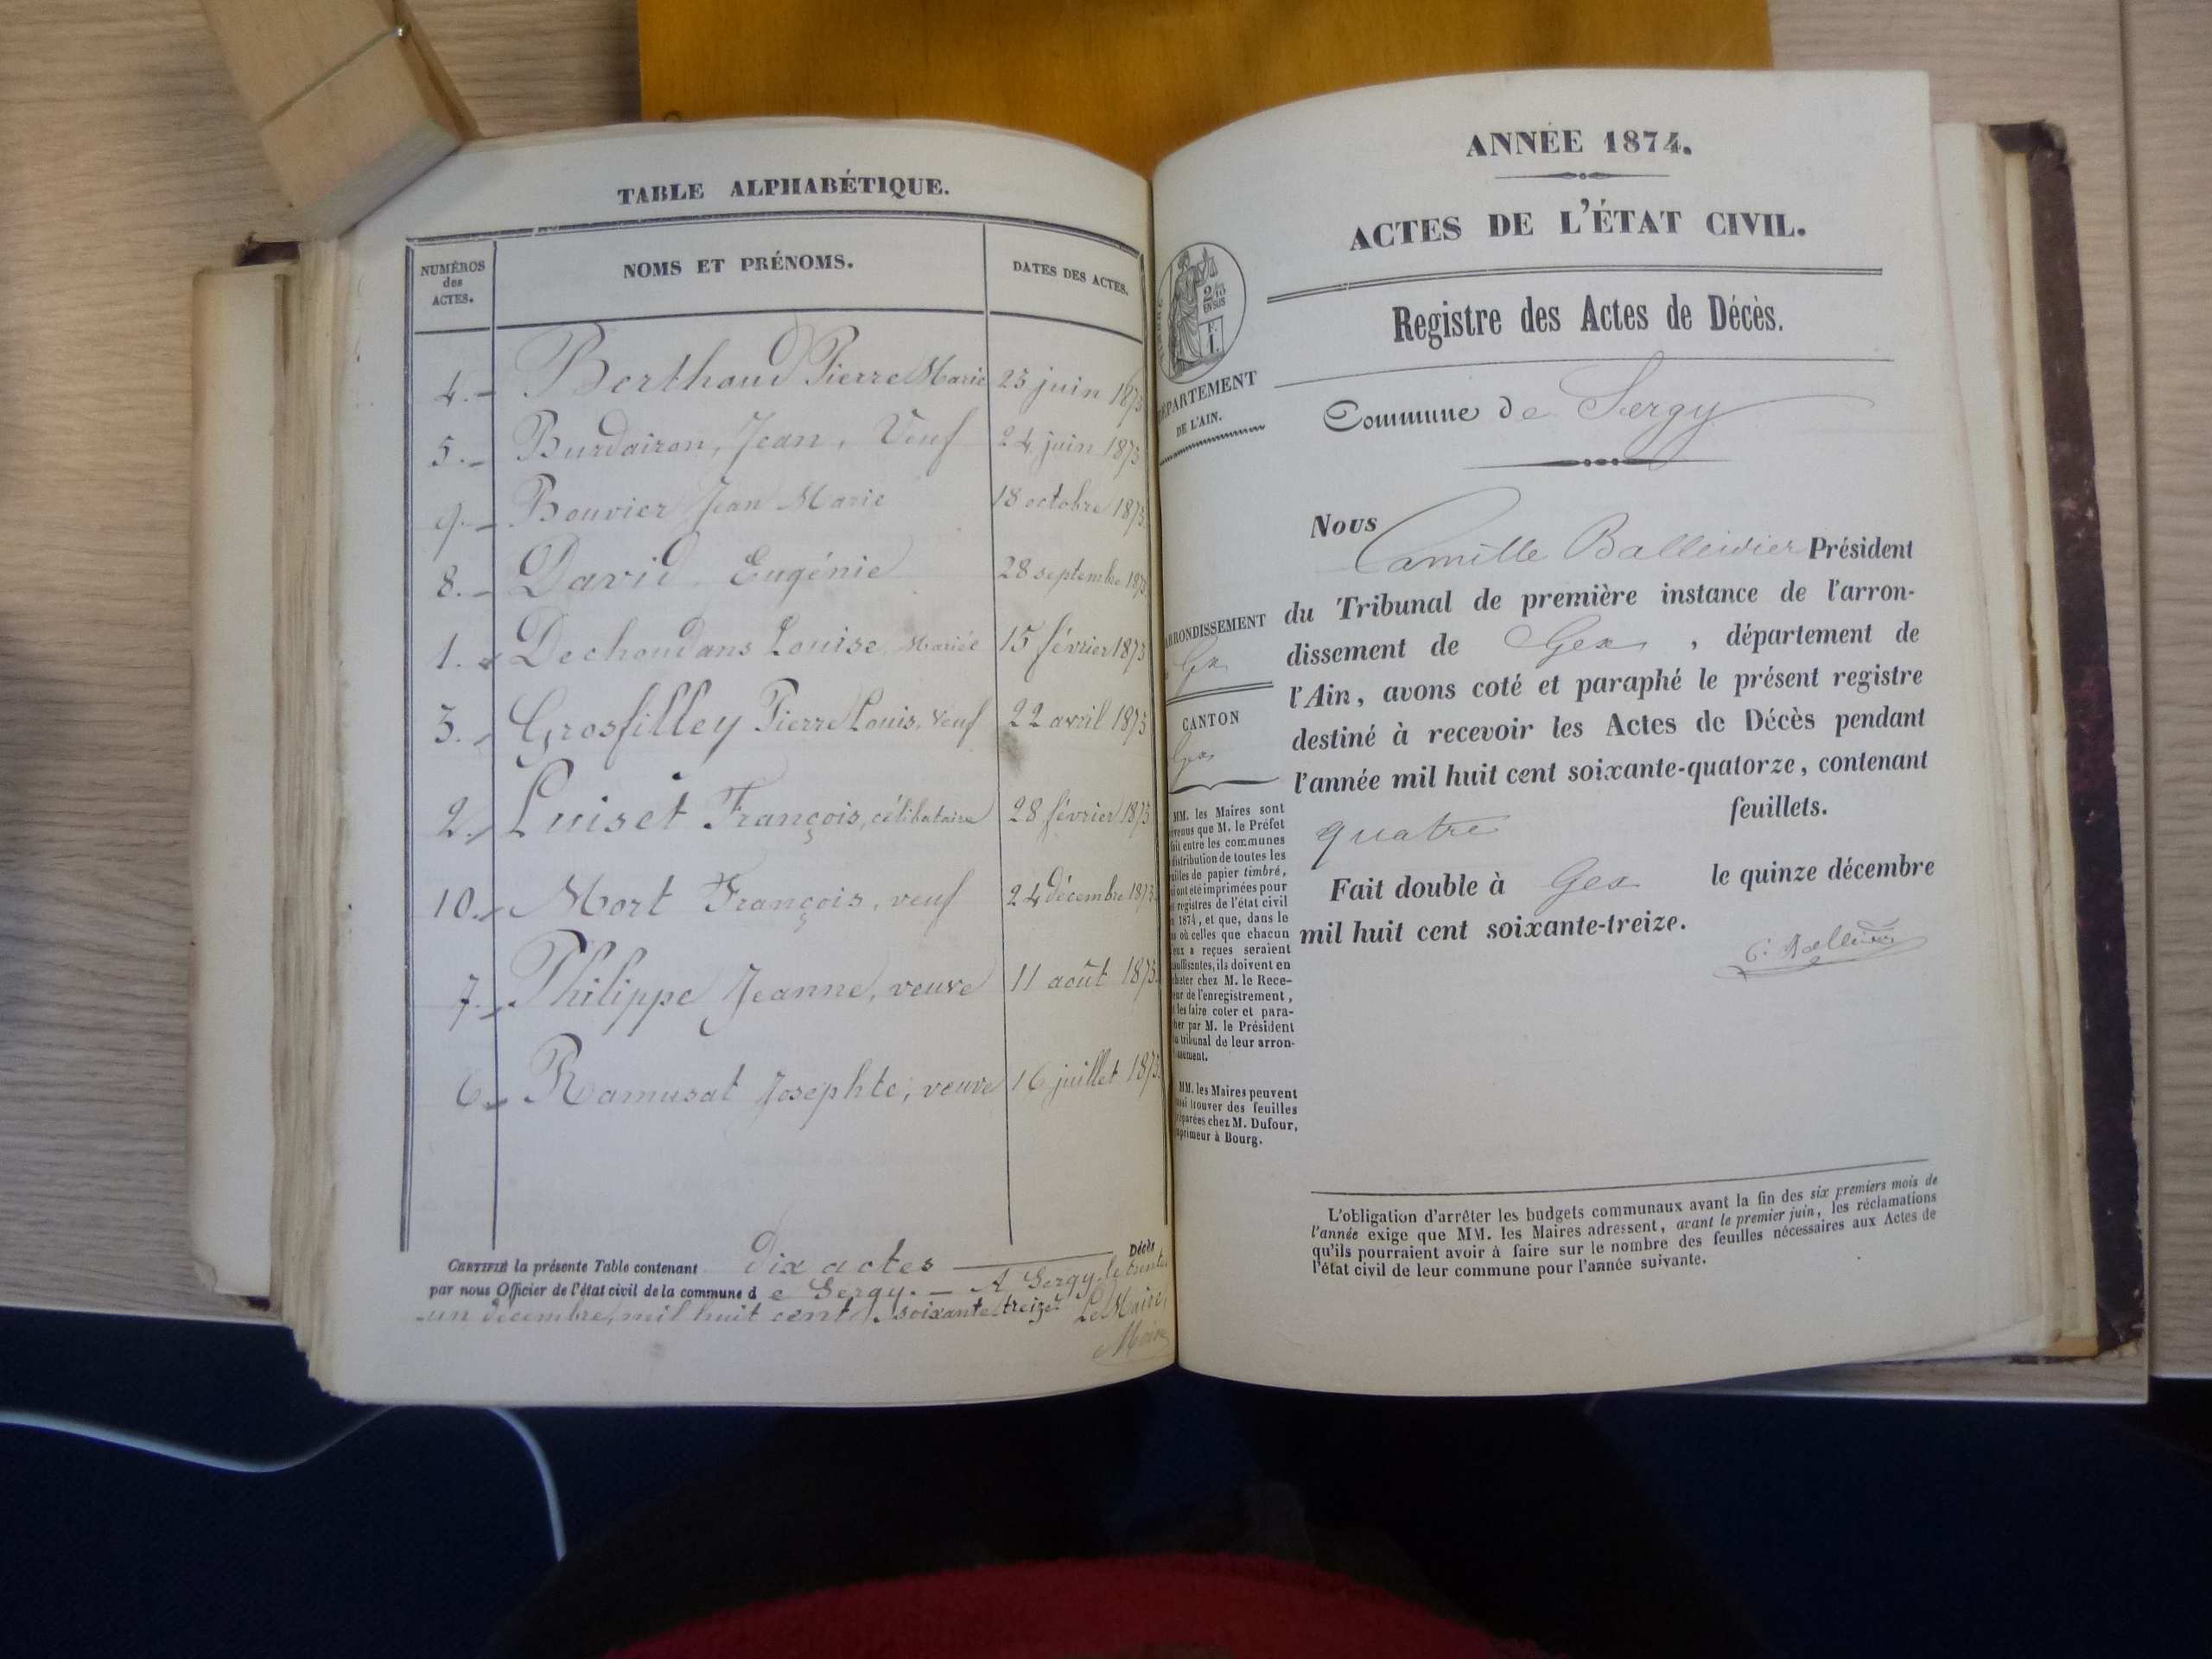 TABLE ALPHABÉTIQUE.
NUMÉROS des ACTES.
NOMS ET PRÉNOMS.
DATES DES ACTES.
4. Berthoud Pierre Marie 23 juin 1873
5. Burdairon, Jean, Veuf 24 juin 1873
9. Bouvier Jean Marie 18 octobre 1873
8. David Eugénie 28 septembre 1873
1. Dechoudans Louise Mariée 15 février 1873
3. Grosfilley Pierre Louis, Veuf 22 avril 1873
2. Luiset François, célibataire 28 février 1873
10. Mort François, veuf 24 décembre 1873
7. Philippe Jeanne, veuve 11 août 1873
6. Ramusat Josephte, veuve 16 juillet 1873
CERTIFIÉ la présente Table contenant dix actes Décès
par nous Officier de l'état civil de la commune de Sergy. — A Sergy, le trente
-un décembre, mil huit cent soixante treize. Le Maire,
ANNÉE 1874.
ACTES DE L'ÉTAT CIVIL.
2/10 EN SUS
F. 1.
Registre des Actes de Décès.
DÉPARTEMENT
DE L'AIN.
Commune de Sergy
ARRONDISSEMENT
Gex
CANTON
Gex
MM. les Maires sont
prévenus que M. le Préfet
fait entre les communes
distribution de toutes les
feuilles de papier timbré,
ont été imprimées pour
registres de l'état civil
1874, et que, dans le
où celles que chacun
eux a reçues seraient
insuffisantes, ils doivent en
acheter chez M. le Rece-
veur de l'enregistrement,
les faire coter et para-
pher par M. le Président
tribunal de leur arron-
dissement.
MM. les Maires peuvent
aussi trouver des feuilles
préparées chez M. Dufour,
imprimeur à Bourg.
Nous Camille Balleidier Président
du Tribunal de première instance de l'arron-
dissement de Gex, département de
l'Ain, avons coté et paraphé le présent registre
destiné à recevoir les Actes de Décès pendant
l'année mil huit cent soixante-quatorze, contenant
quatre feuillets.
Fait double à Gex le quinze décembre
mil huit cent soixante-treize.
L'obligation d'arrêter les budgets communaux avant la fin des six premiers mois de
l'année exige que MM. les Maires adressent, avant le premier juin, les réclamations
qu'ils pourraient avoir à faire sur le nombre des feuilles nécessaires aux Actes de
l'état civil de leur commune pour l'année suivante.